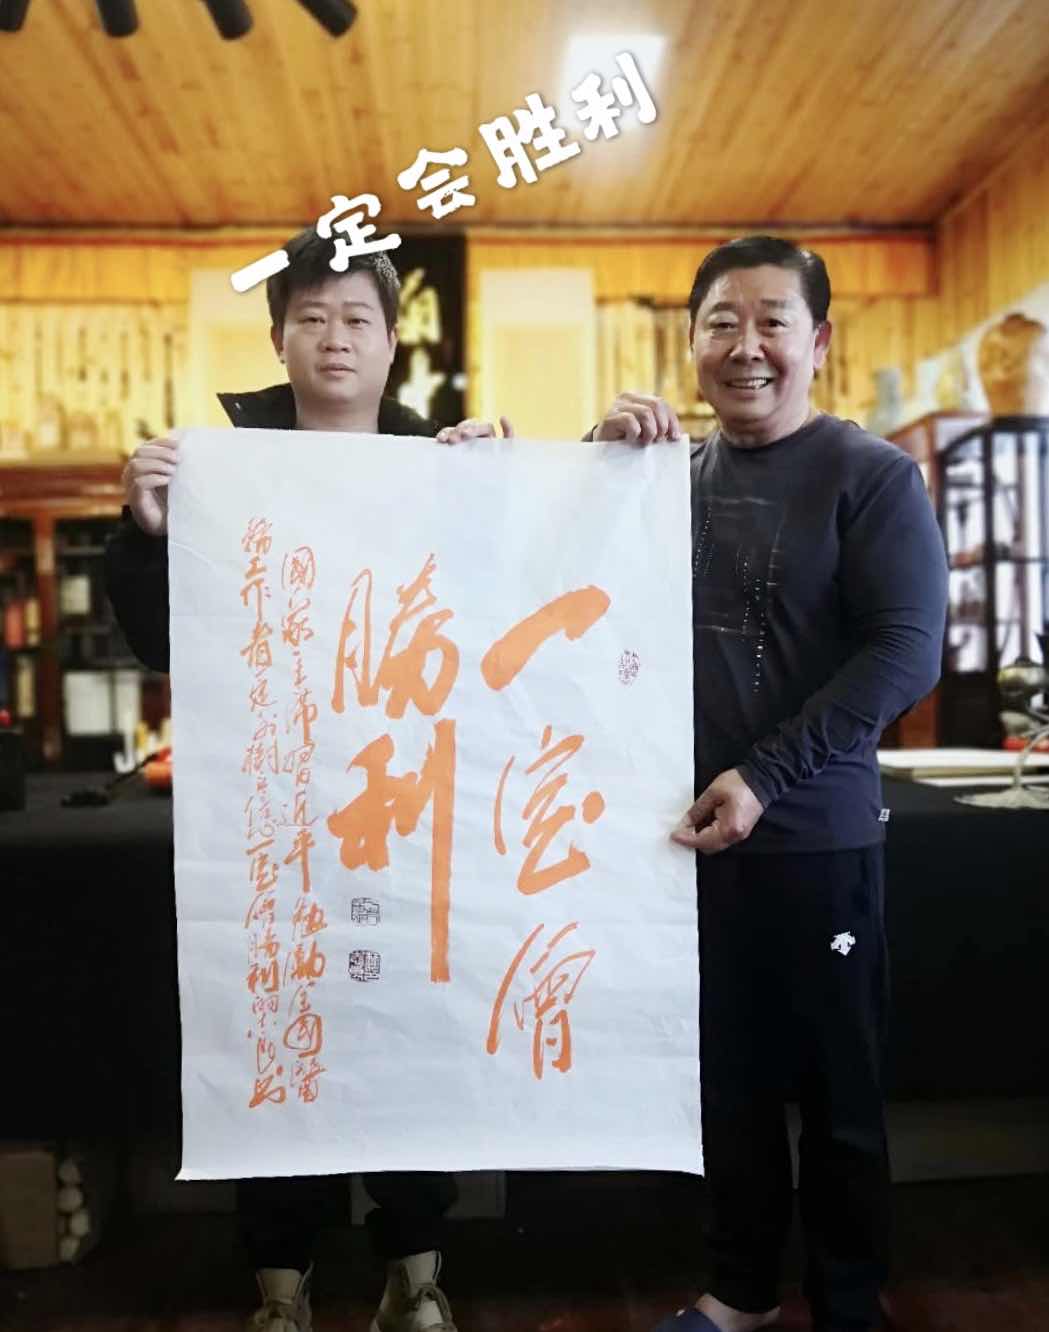 一定会胜利
一定會
勝利
國家主席習近平勉勵全國醫
務工作者一定要樹立信心一定會勝利